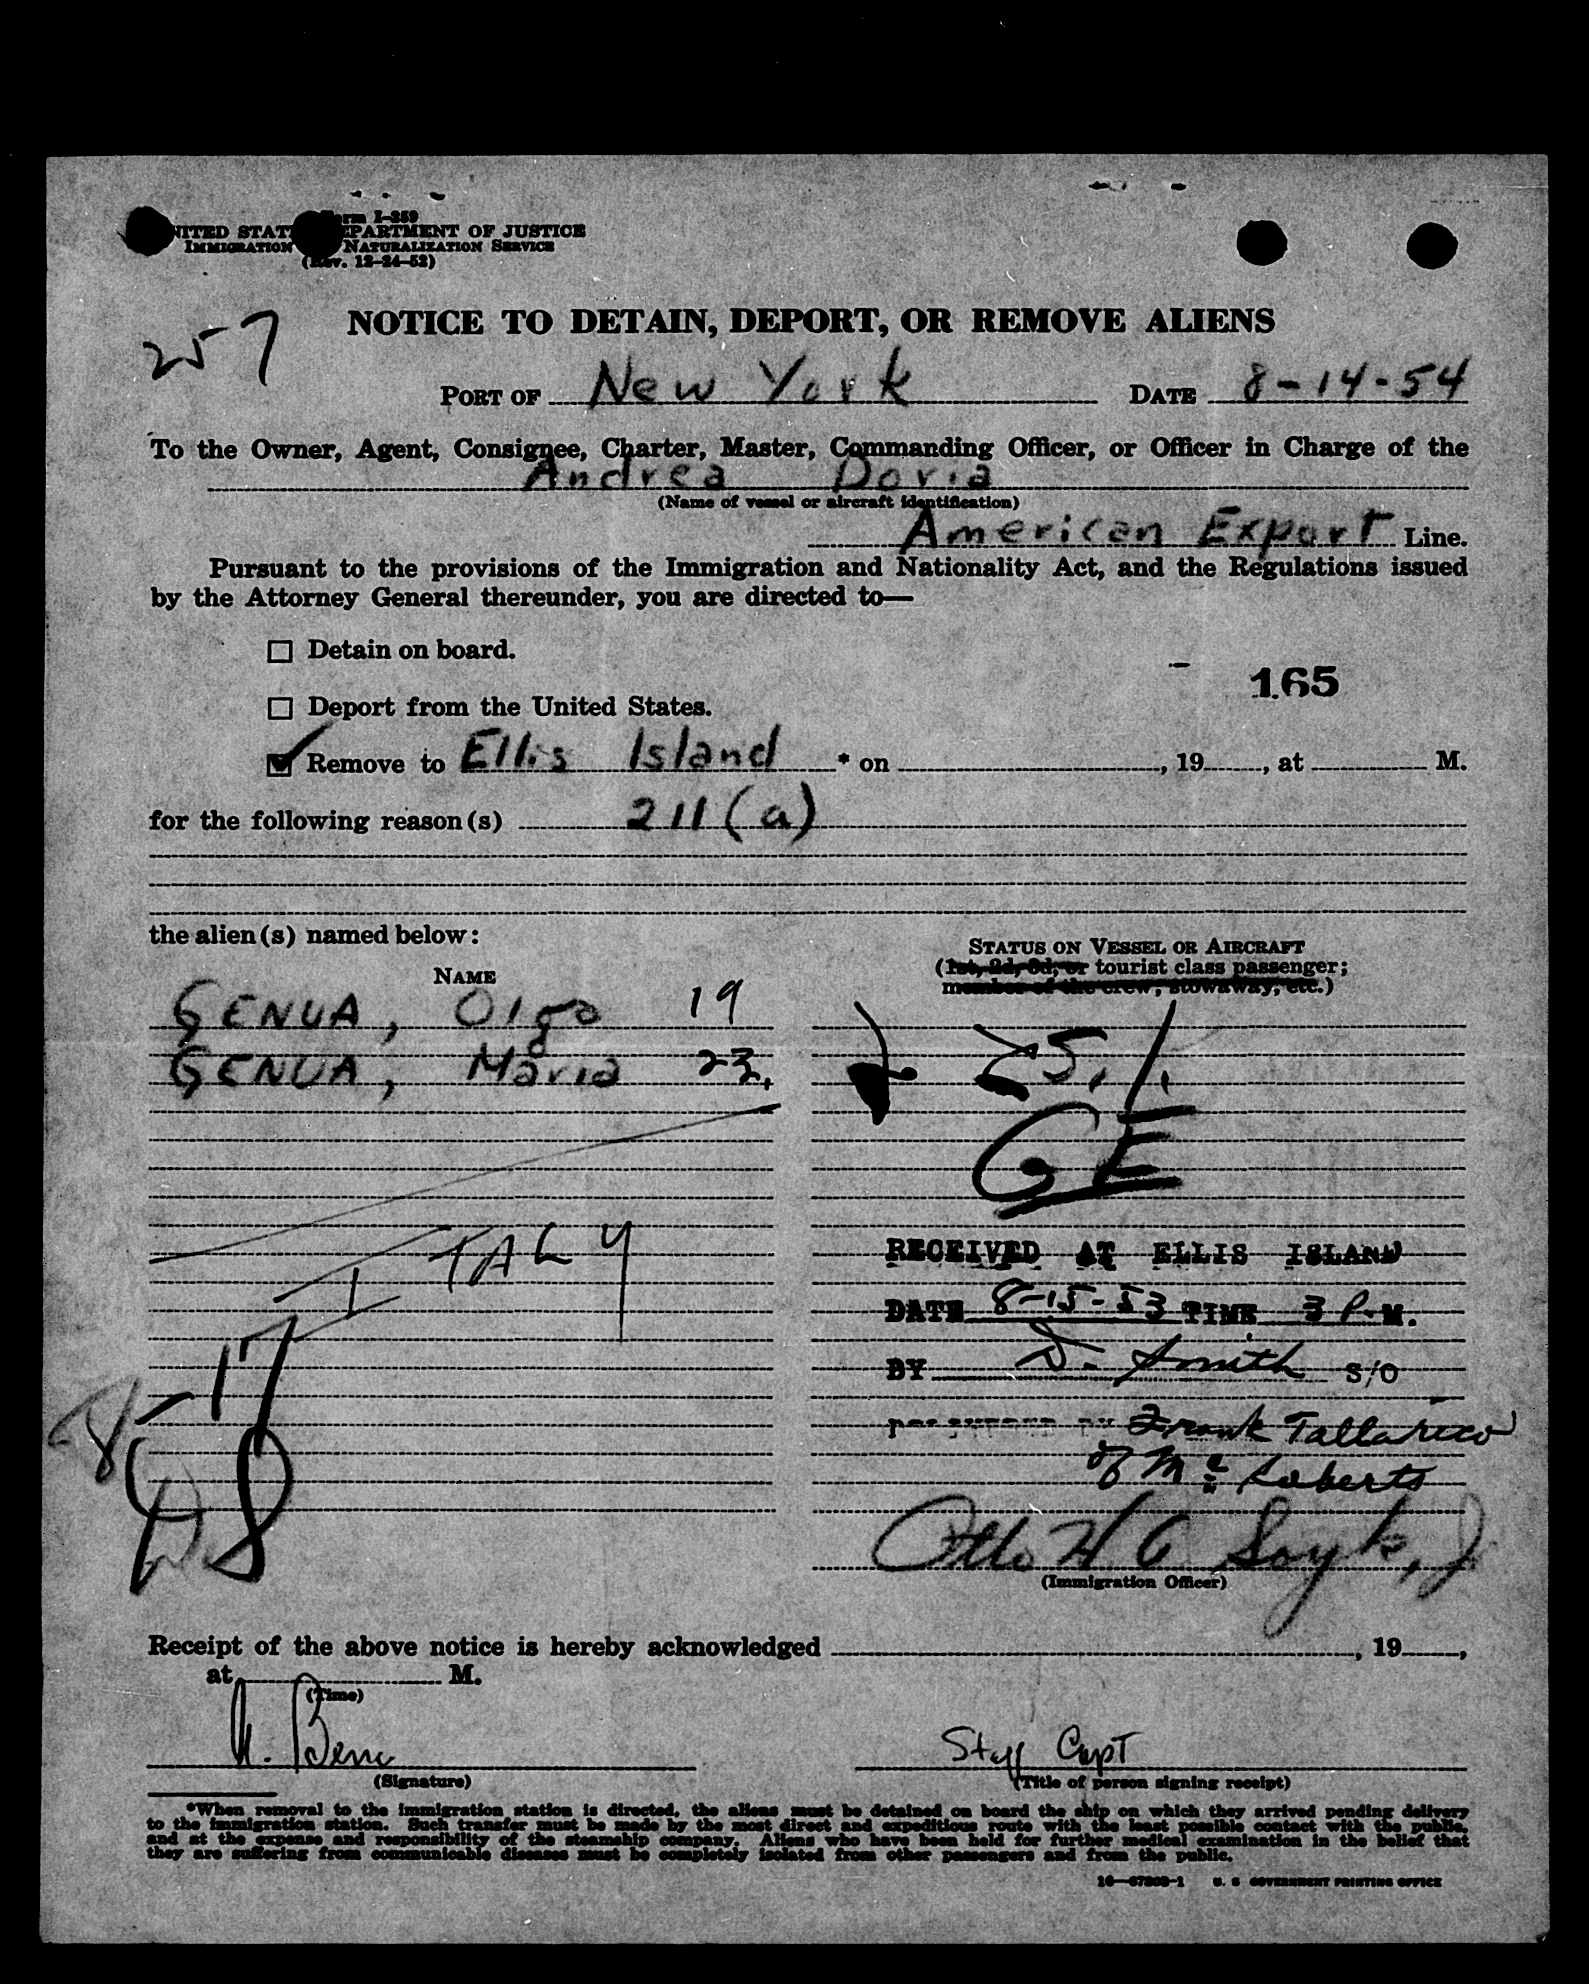 Form I-259
UNITED STATES DEPARTMENT OF JUSTICE
IMMIGRATION NATURALIZATION SERVICE
(Rev. 12-24-52)
257
NOTICE TO DETAIN, DEPORT, OR REMOVE ALIENS
PORT OF New York DATE 8-14-54
To the Owner, Agent, Consignee, Charter, Master, Commanding Officer, or Officer in Charge of the
Andrea Doria
(Name of vessel or aircraft identification)
American Export Line.
Pursuant to the provisions of the Immigration and Nationality Act, and the Regulations issued
by the Attorney General thereunder, you are directed to—
Detain on board.
165
Deport from the United States.
Remove to Ellis Island * on , 19 , at M.
for the following reason(s) 211(a)
the alien(s) named below:
STATUS ON VESSEL OR AIRCRAFT
(1st, 2d, 3d, or tourist class passenger;
member of the crew, stowaway, etc.)
NAME
GENUA, Olga 19
GENUA, Maria 23,
GE
ITALY
RECEIVED AT ELLIS ISLAND
DATE 8-15-53 TIME 3 P.M.
BY D. Smith S/O
8-17
DELIVERED BY Frank Tallarico
of Mc Roberts
Otto H C Soyk, J
(Immigration Officer)
Receipt of the above notice is hereby acknowledged , 19 ,
at M.
(Time)
Staff Capt
(Signature)
(Title of person signing receipt)
*When removal to the immigration station is directed, the aliens must be detained on board the ship on which they arrived pending delivery
to the immigration station. Such transfer must be made by the most direct and expeditious route with the least possible contact with the public,
and at the expense and responsibility of the steamship company. Aliens who have been held for further medical examination in the belief that
they are suffering from communicable diseases must be completely isolated from other passengers and from the public.
U. S. GOVERNMENT PRINTING OFFICE